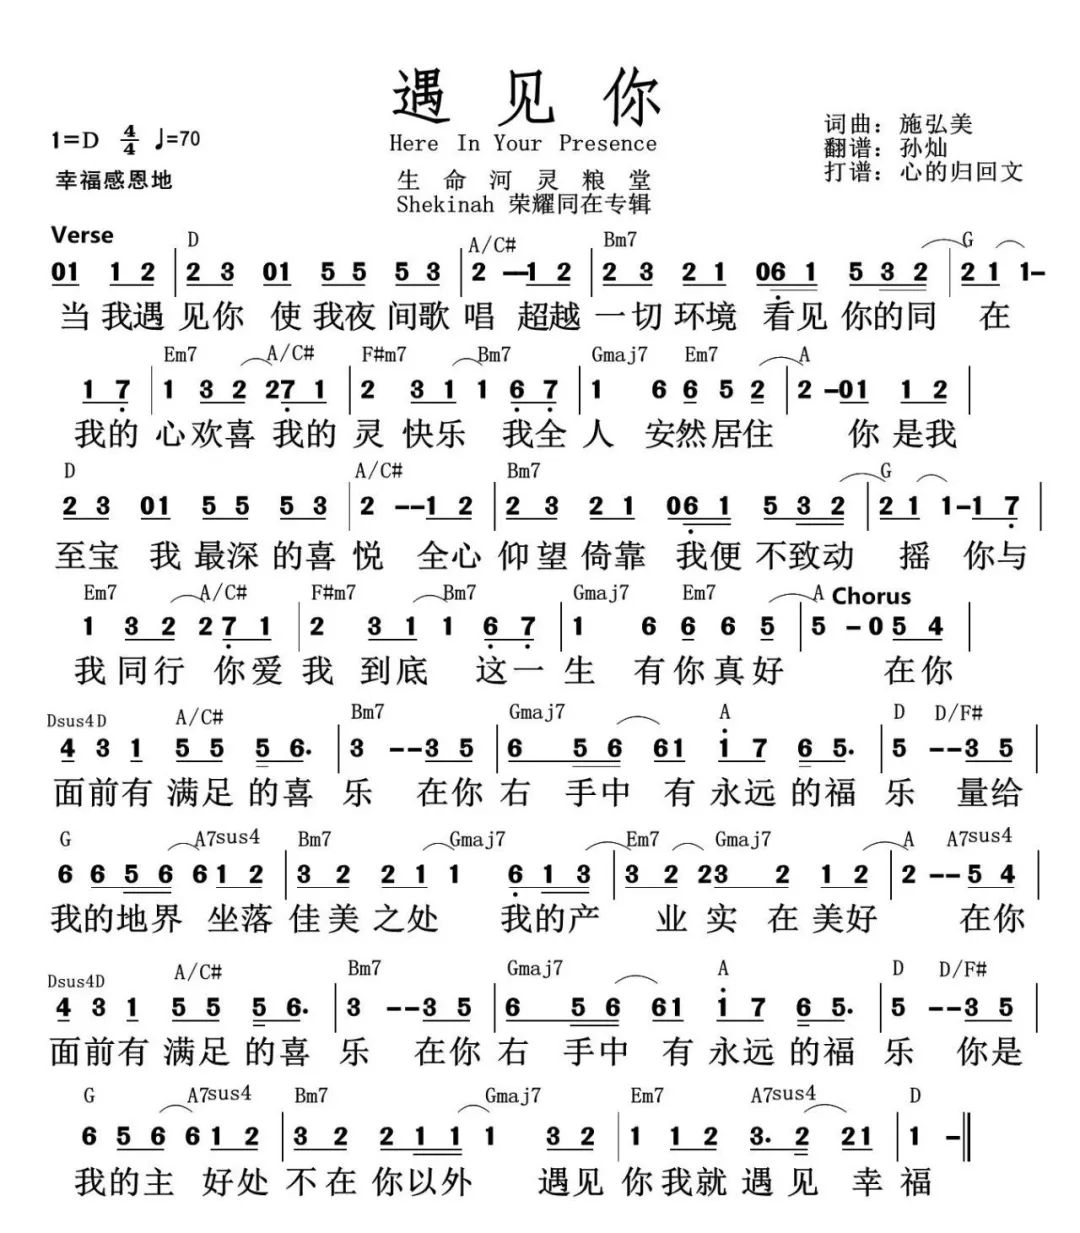 遇见你
Here In Your Presence
1=D 4/4 ♩=70
幸福感恩地
生命河灵粮堂
Shekinah 荣耀同在专辑
词曲：施弘美
翻谱：孙灿
打谱：心的归回文
Verse D A/C# Bm7 G
01 12 | 23 01 55 53 | 2 --12 | 23 21 061 532 | 21 1-
当我遇见你 使我夜间歌唱 超越一切环境 看见你的同在
Em7 A/C# F#m7 Bm7 Gmaj7 Em7 A
17 | 1 32 271 | 2 31 1 67 | 1 6 6 5 2 | 2-01 12 |
我的心欢喜 我的灵快乐 我全人 安然居住 你是我
D A/C# Bm7 G
23 01 55 53 | 2 --12 | 23 21 061 532 | 21 1-17 |
至宝 我最深的喜悦 全心仰望倚靠 我便不致动摇 你与
Em7 A/C# F#m7 Bm7 Gmaj7 Em7 A Chorus
1 32 271 | 2 31 1 67 | 1 6 6 6 5 | 5 -0 54 |
我同行 你爱我到底 这一生 有你真好 在你
Dsus4 D A/C# Bm7 Gmaj7 A D D/F#
4 3 1 55 56. | 3 --35 | 6 56 61 17 65. | 5 --35 |
面前有满足的喜乐 在你右手中 有永远的福乐 量给
G A7sus4 Bm7 Gmaj7 Em7 Gmaj7 A A7sus4
6 656 612 | 32 21 1 613 | 32 23 2 12 | 2--54 |
我的地界 坐落佳美之处 我的产业实在美好 在你
Dsus4D A/C# Bm7 Gmaj7 A D D/F#
4 3 1 55 56. | 3 --35 | 6 56 61 17 65. | 5 --35 |
面前有满足的喜乐 在你右手中 有永远的福乐 你是
G A7sus4 Bm7 Gmaj7 Em7 A7sus4 D
6 56 612 | 32 211 1 32 | 1 12 3.2 21 | 1 -||
我的主 好处不在你以外 遇见你我就遇见幸福